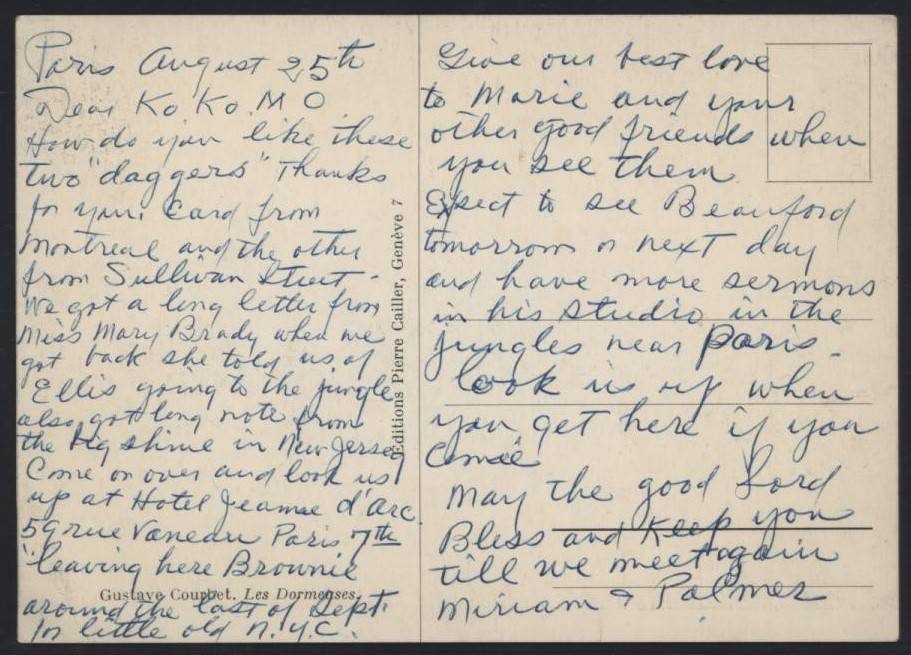 Paris August 25th
Dear Ko Ko. M O
How do you like these
two "daggers" Thanks
for your card from
Montreal and the other
from Sullivan Street -
We got a long letter from
Miss Mary Brady when we
got back she told us of
Ellis going to the jungle
also got long note from
the big shine in New Jersey
Come on over and look us
up at Hotel Jeanne d'Arc
59 rue Vaneau Paris 7th
leaving here Brownie
around the last of Sept.
for little old N.Y.C.
Gustave Courbet. Les Dormeuses.
Editions Pierre Cailler, Genève 7
Give our best love
to Marie and your
other good friends when
you see them
Expect to see Beauford
tomorrow or next day
and have more sermons
in his studio in the
jungles near Paris.
Look us up when
you get here if you
Come
May the good Lord
Bless and Keep you
till we meet again
Miriam & Palmer